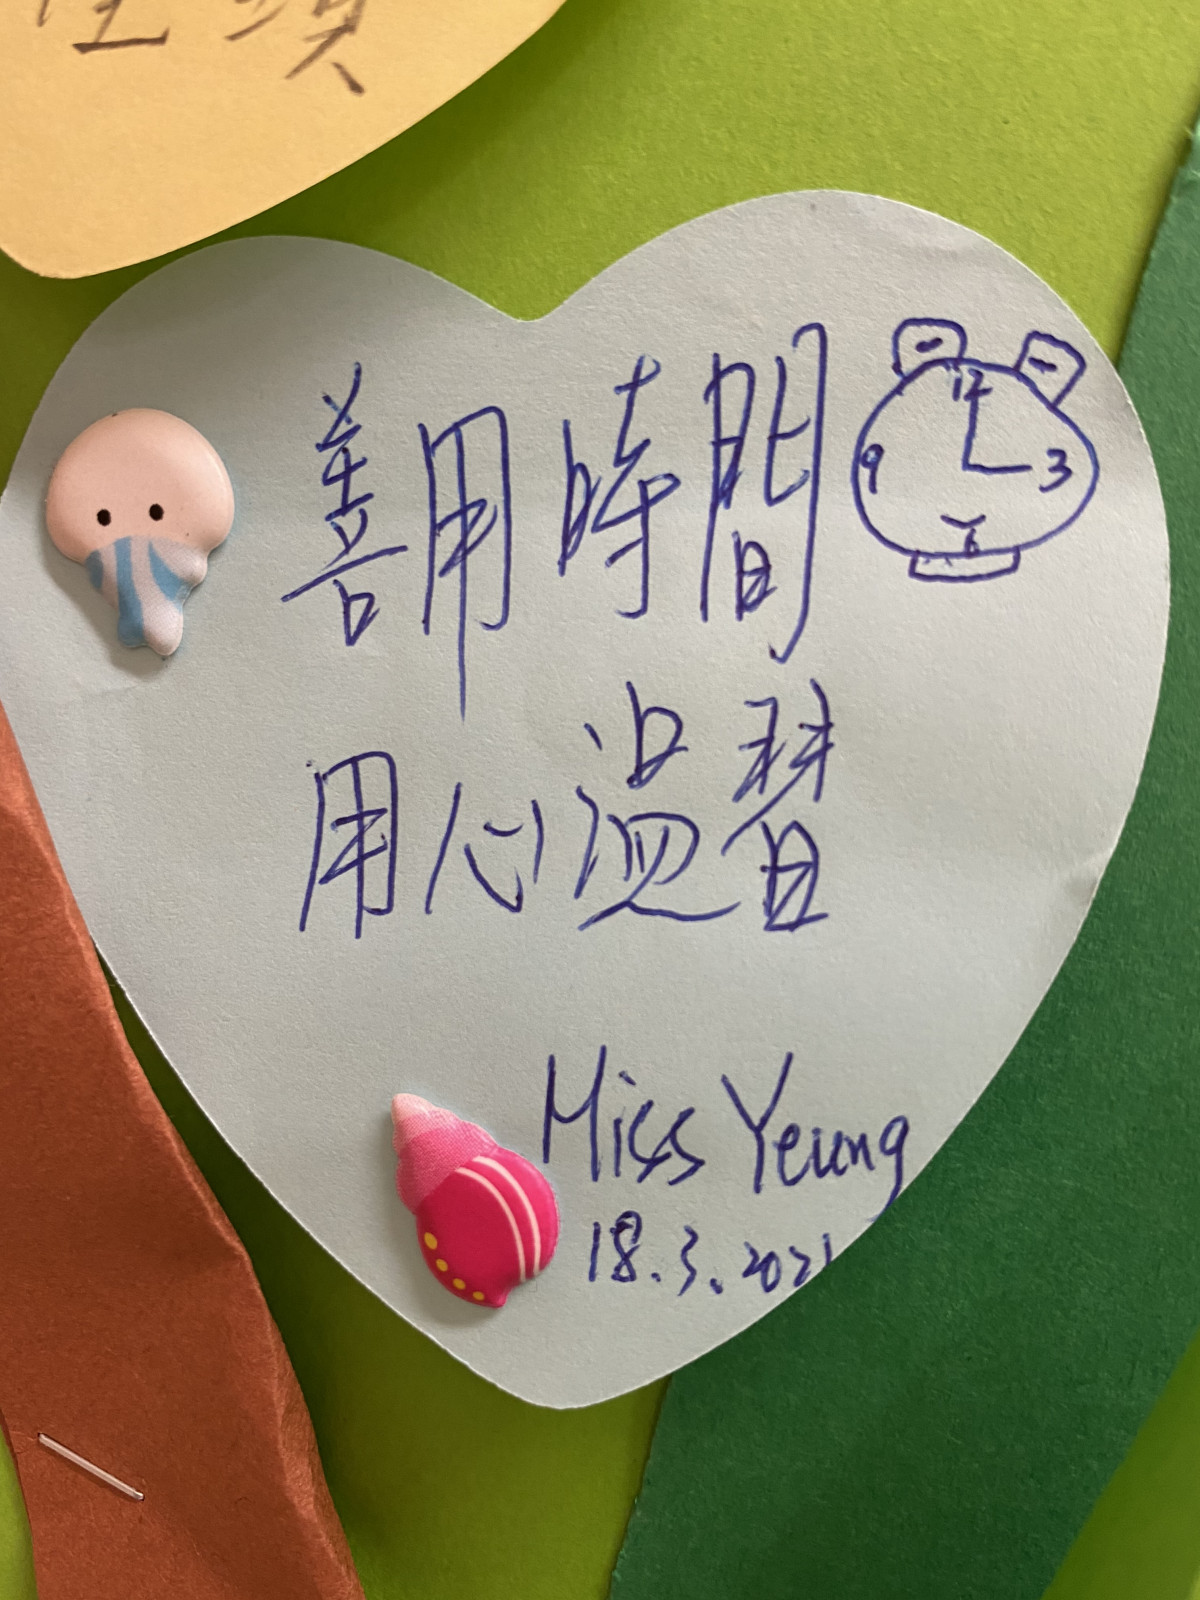 善用時間
12
9 3
6
用心溫習
Miss Yeung
18.3.2021